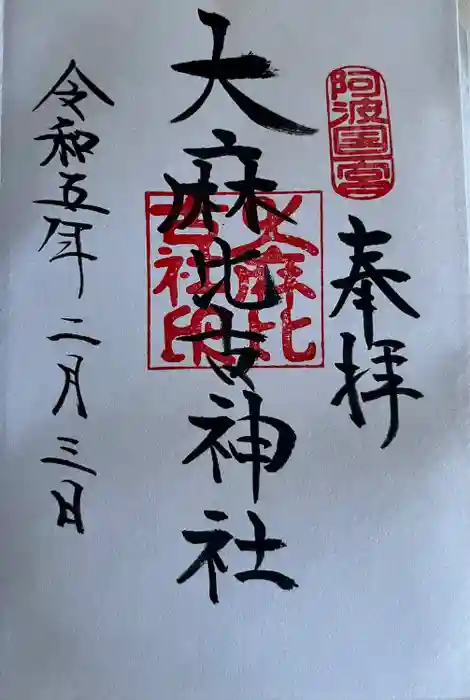 阿波国宮
奉拝
大麻比古神社
大麻比古社印
令和五年二月三日